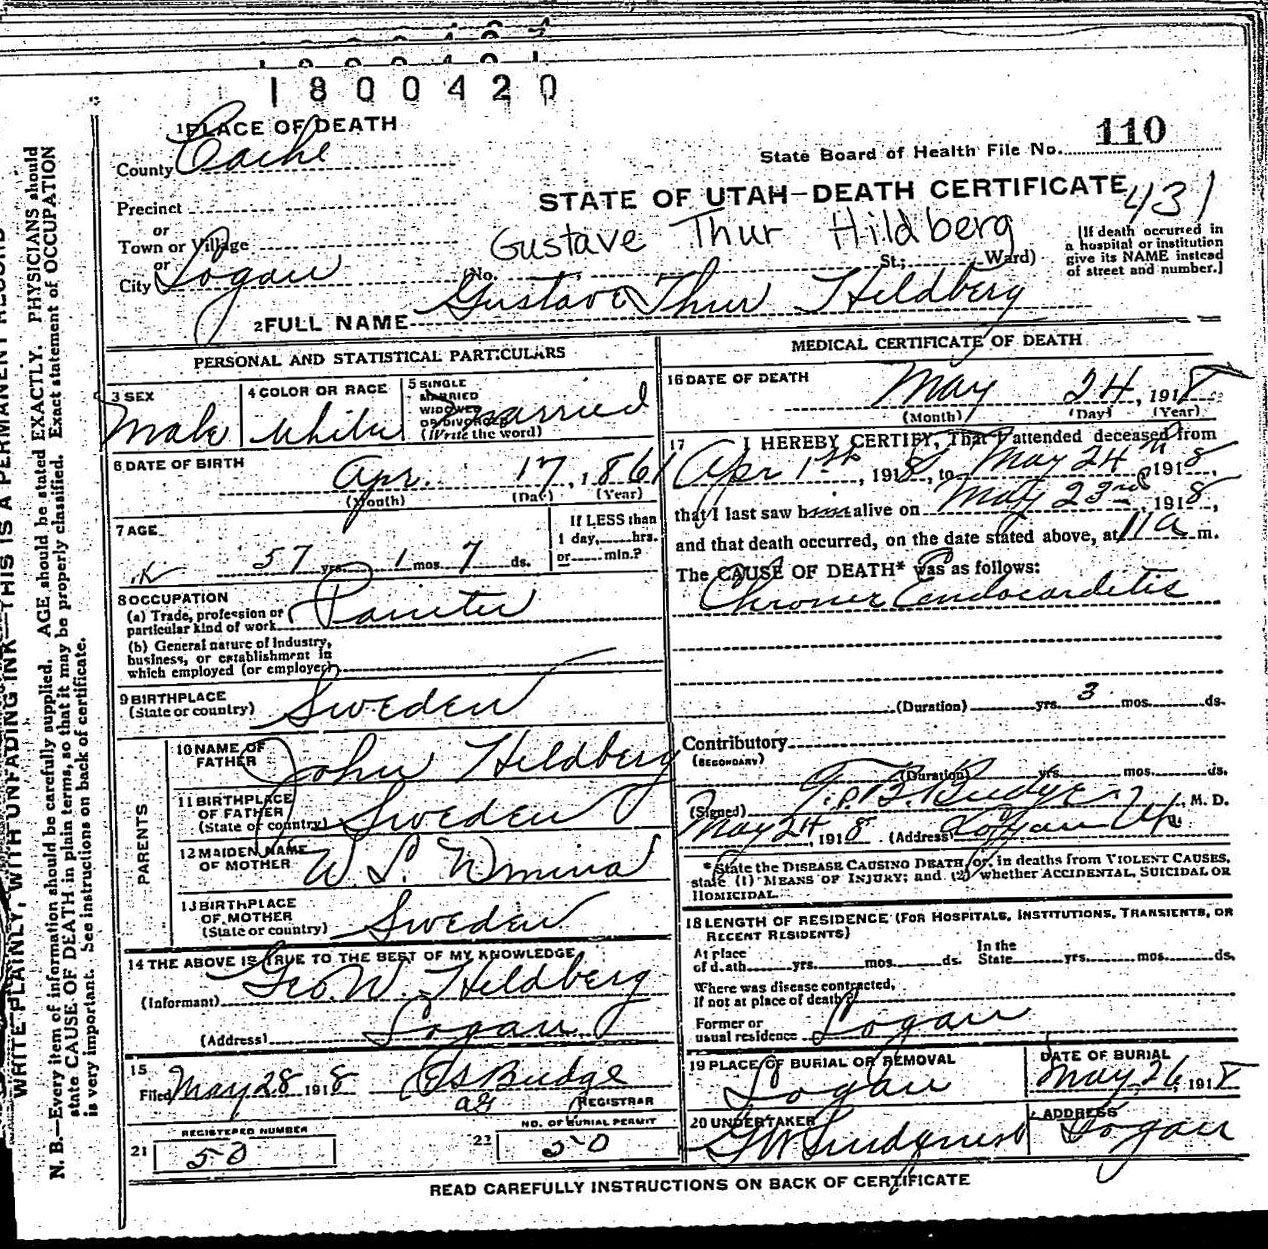 1800420
1 PLACE OF DEATH
County Cache
State Board of Health File No. 110
Precinct
STATE OF UTAH—DEATH CERTIFICATE 431
or
Town or Village
Gustave Thur Hildberg
or
City Logan
No. St.; Ward)
[If death occurred in
a hospital or institution
give its NAME instead
of street and number.]
2 FULL NAME Gustave Thur Hildberg
PERSONAL AND STATISTICAL PARTICULARS
3 SEX
Male
4 COLOR OR RACE
White
5 SINGLE
MARRIED
WIDOWED
OR DIVORCED
(Write the word)
Married
6 DATE OF BIRTH
Apr. 17, 1861
(Month) (Day) (Year)
7 AGE
57 yrs. 1 mos. 7 ds.
If LESS than
1 day, hrs.
or min.?
8 OCCUPATION
(a) Trade, profession or
particular kind of work Painter
(b) General nature of Industry,
business, or establishment in
which employed (or employer)
9 BIRTHPLACE
(State or country) Sweden
PARENTS
10 NAME OF
FATHER John Hildberg
11 BIRTHPLACE
OF FATHER
(State or country) Sweden
12 MAIDEN NAME
OF MOTHER W. S.
13 BIRTHPLACE
OF MOTHER
(State or country) Sweden
14 THE ABOVE IS TRUE TO THE BEST OF MY KNOWLEDGE
(Informant) Geo. W. Hildberg
(Address) Logan
15
Filed May 28 1918 Budge
REGISTRAR
REGISTERED NUMBER
21 50
NO. OF BURIAL PERMIT
22 50
MEDICAL CERTIFICATE OF DEATH
16 DATE OF DEATH
May 24, 1918
(Month) (Day) (Year)
17 I HEREBY CERTIFY, That I attended deceased from
Apr 1st, 1918, to May 24th 1918,
that I last saw him alive on May 23rd 1918,
and that death occurred, on the date stated above, at 11 a m.
The CAUSE OF DEATH* was as follows:
Chronic Endocarditis
(Duration) yrs. 3 mos. ds.
Contributory
(SECONDARY)
(Duration) yrs. mos. ds.
(Signed) T. B. Budge, M. D.
May 24, 1918 (Address) Logan Ut.
* State the DISEASE CAUSING DEATH, or, in deaths from VIOLENT CAUSES,
state (1) MEANS OF INJURY; and (2) whether ACCIDENTAL, SUICIDAL OR
HOMICIDAL.
18 LENGTH OF RESIDENCE (FOR HOSPITALS, INSTITUTIONS, TRANSIENTS, OR
RECENT RESIDENTS)
At place
of death yrs. mos. ds.
In the
State yrs. mos. ds.
Where was disease contracted,
if not at place of death?
Former or
usual residence Logan
19 PLACE OF BURIAL OR REMOVAL
Logan
DATE OF BURIAL
May 26, 1918
20 UNDERTAKER
G W Lindquist
ADDRESS
Logan
READ CAREFULLY INSTRUCTIONS ON BACK OF CERTIFICATE
WRITE PLAINLY, WITH UNFADING INK—THIS IS A PERMANENT RECORD
N. B.—Every item of information should be carefully supplied. AGE should be stated EXACTLY. PHYSICIANS should
state CAUSE OF DEATH in plain terms, so that it may be properly classified. Exact statement of OCCUPATION
is very important. See instructions on back of certificate.